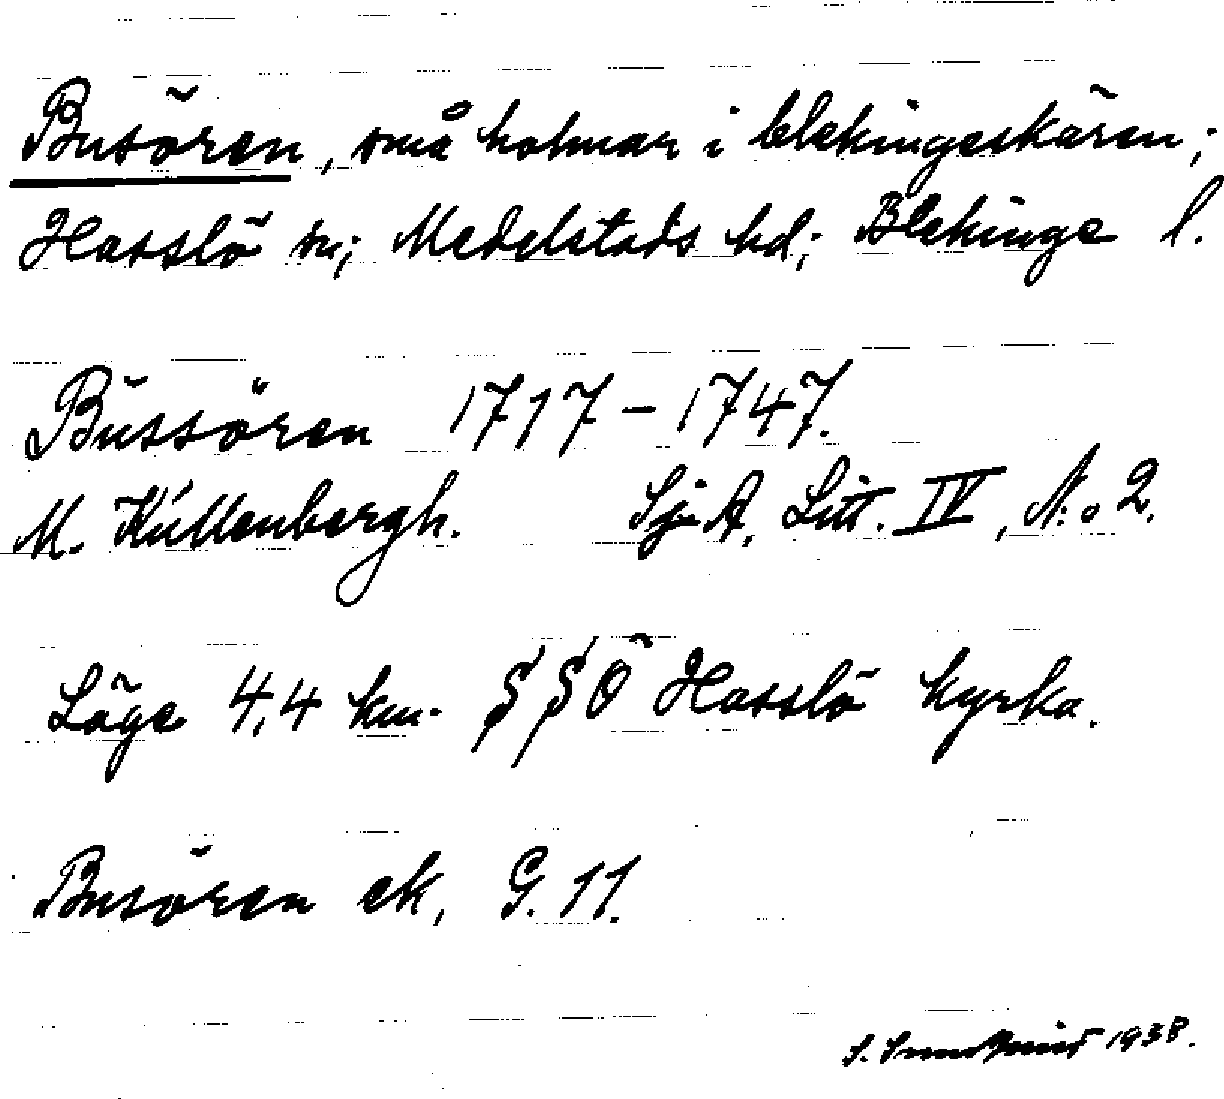 Busören, små holmar i blekingeskären;
Hasslö sn; Medelstads hd; Blekinge l.
Bussören 1717-1747.
M. Küllenbergh. Sj. A. Litt. IV, N:o 2.
Läge 4,4 km. SSÖ Hasslö kyrka.
Busören ek, G. 11.
S. 1938.